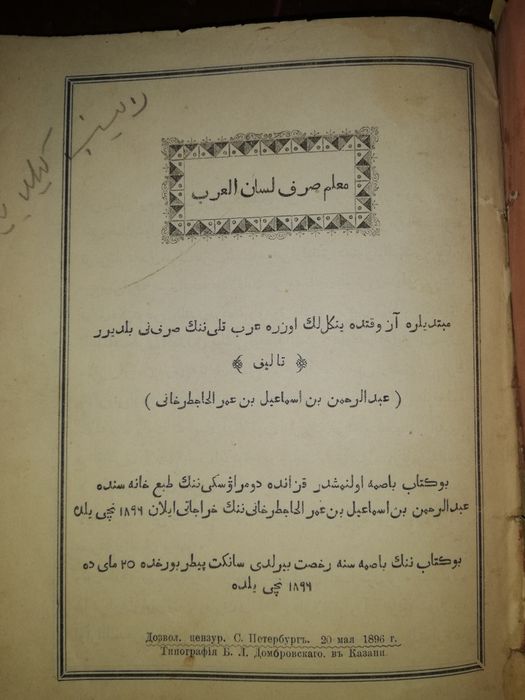 معلم صرف لسان العرب
مبتديلره آز وقتده ينكل لك اوزره عرب تلى ننك صرف نى بلديرر
تاليف
( عبدالرحمن بن اسماعيل بن عمر الحاجطرخانى )
بوكتاب باصمه اولنمشدر قزانده دومراوسكى ننك طبع خانه سنده
عبدالرحمن بن اسماعيل بن عمر الحاجطرخانى ننك خراجاتى ايلان ١٨٩٦ نچى يلده
بوكتاب ننك باصمه سنه رخصت بيرلدى سانكت پيطربورخده ٢٥ ماى ده
١٨٩٦ نچى يلده
Дозвол. цензур. С. Петербургъ. 20 мая 1896 г.
Типографія Б. Л. Домбровскаго. въ Казани